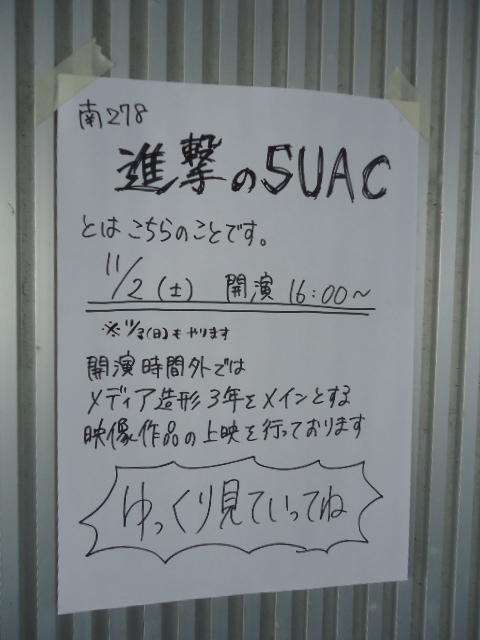 南278
進撃のSUAC
とはこちらのことです。
11/2(土) 開演 16:00～
※11/3(日)もやります
開演時間外では
メディア造形3年をメインとする
映像作品の上映を行っております
ゆっくり見ていってね